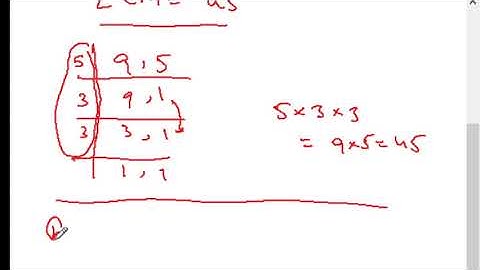 LCM = 45
5 | 9, 5
3 | 9, 1
3 | 3, 1
1, 1
5 × 3 × 3
= 9×5=45